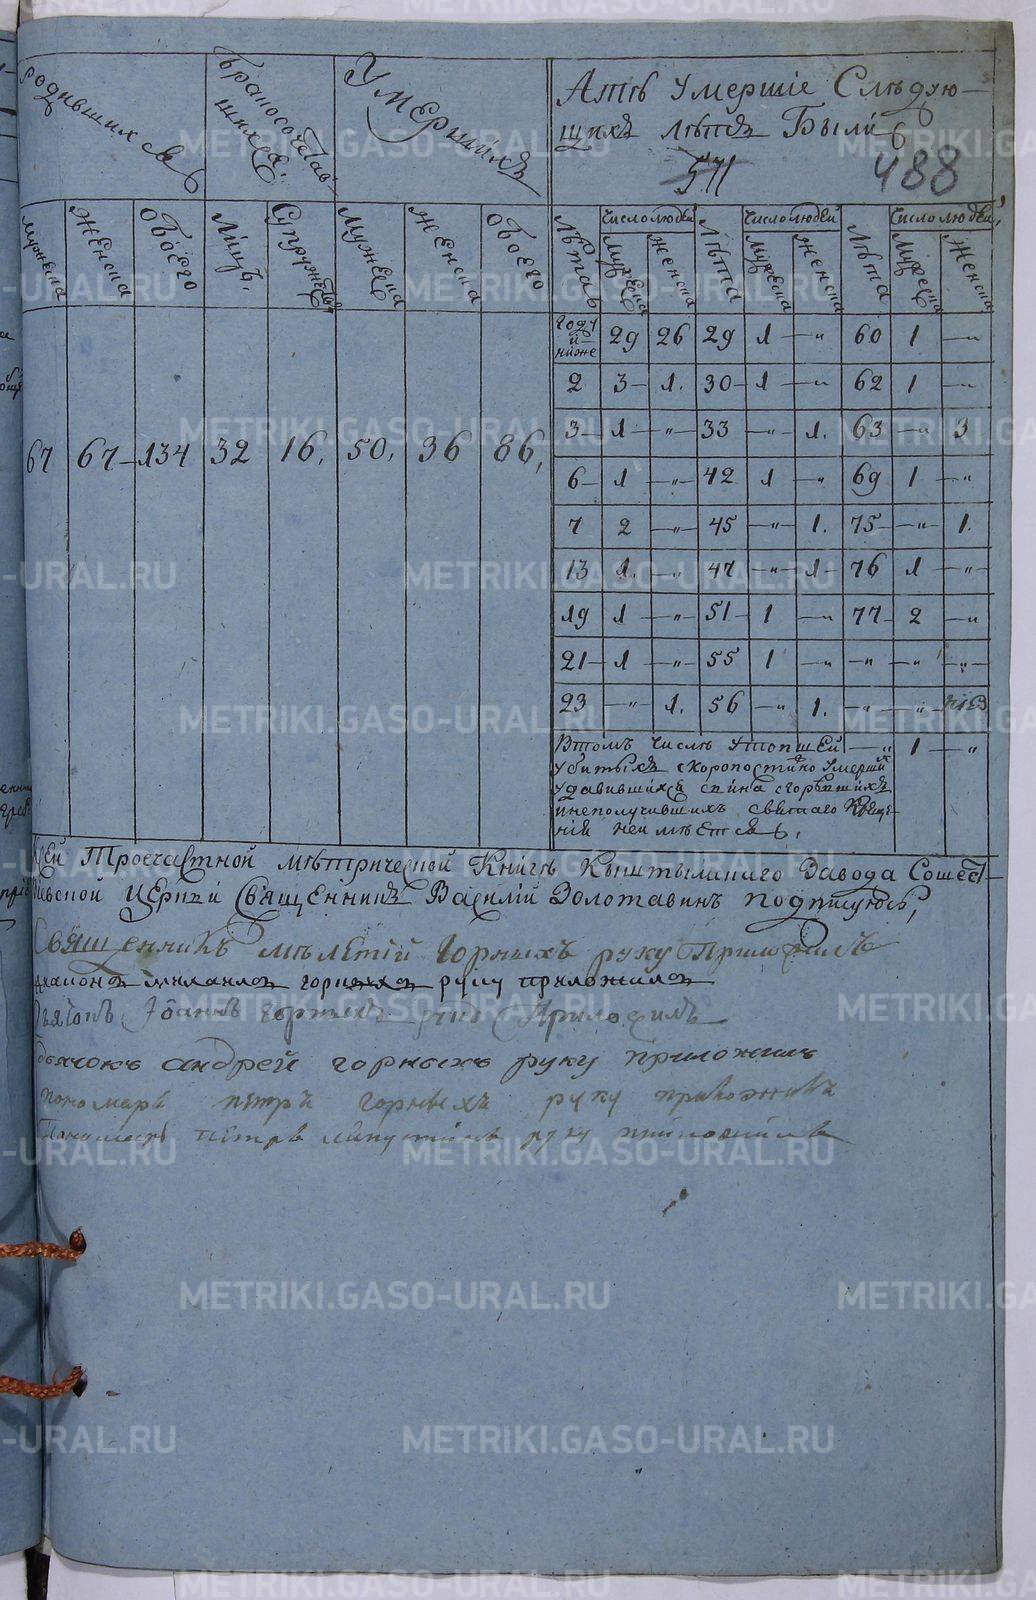 Родившихся
Бракосочетав-
шихся.
Умершихъ
А тѣ Умершіе Слѣдую-
щихъ лѣтъ Были
571 488
мужеска Женска Обоего Лицъ. Супружествъ Мужеска Женска Обоего
Лѣта Число людей Лѣта Число людей Лѣта Число людей
Мужеска Женска Мужеска Женска Мужеска Женска
67 67 134 32 16. 50. 36 86,
Году и ниже 29 26 29 1 — „ 60 1 — „
2 3 1. 30 1 — „ 62 1 — „
3 1 — „ 33 — „ 1. 63 — „ 3
6 1 — „ 42 1 — „ 69 1 — „
7 2 — „ 45 — „ 1. 75 — „ 1.
13 1. — „ 47 — „ 1 76 1 — „
19 1 — „ 51 1 — „ 77 2 — „
21 1 — „ 55 1 — „ — „ — „ — „
23 — „ 1. 56 — „ 1. — „ — „
Втомъ числѣ утопшей — „ 1 — „
убитыхъ скоропостижно умершихъ
удавившихся спина сгорѣвшихъ
инеполучившихъ святаго Креще-
нія неимѣется.
Сей Троечастной метрической Книгѣ Кыштымскаго Завода Сошест-
віевской Церкви Священникъ Василій Золотавинъ подписуюсь,
Священникъ Мелетій Горныхъ руку Приложилъ
Диаконъ Михаилъ горныхъ руку приложилъ
Дьячокъ Іоаннъ руку Приложилъ
дьячокъ андрей горныхъ руку приложилъ
пономарь петръ горныхъ руку приложилъ
Пономарь петръ руку приложилъ
METRIKI.GASO-URAL.RU